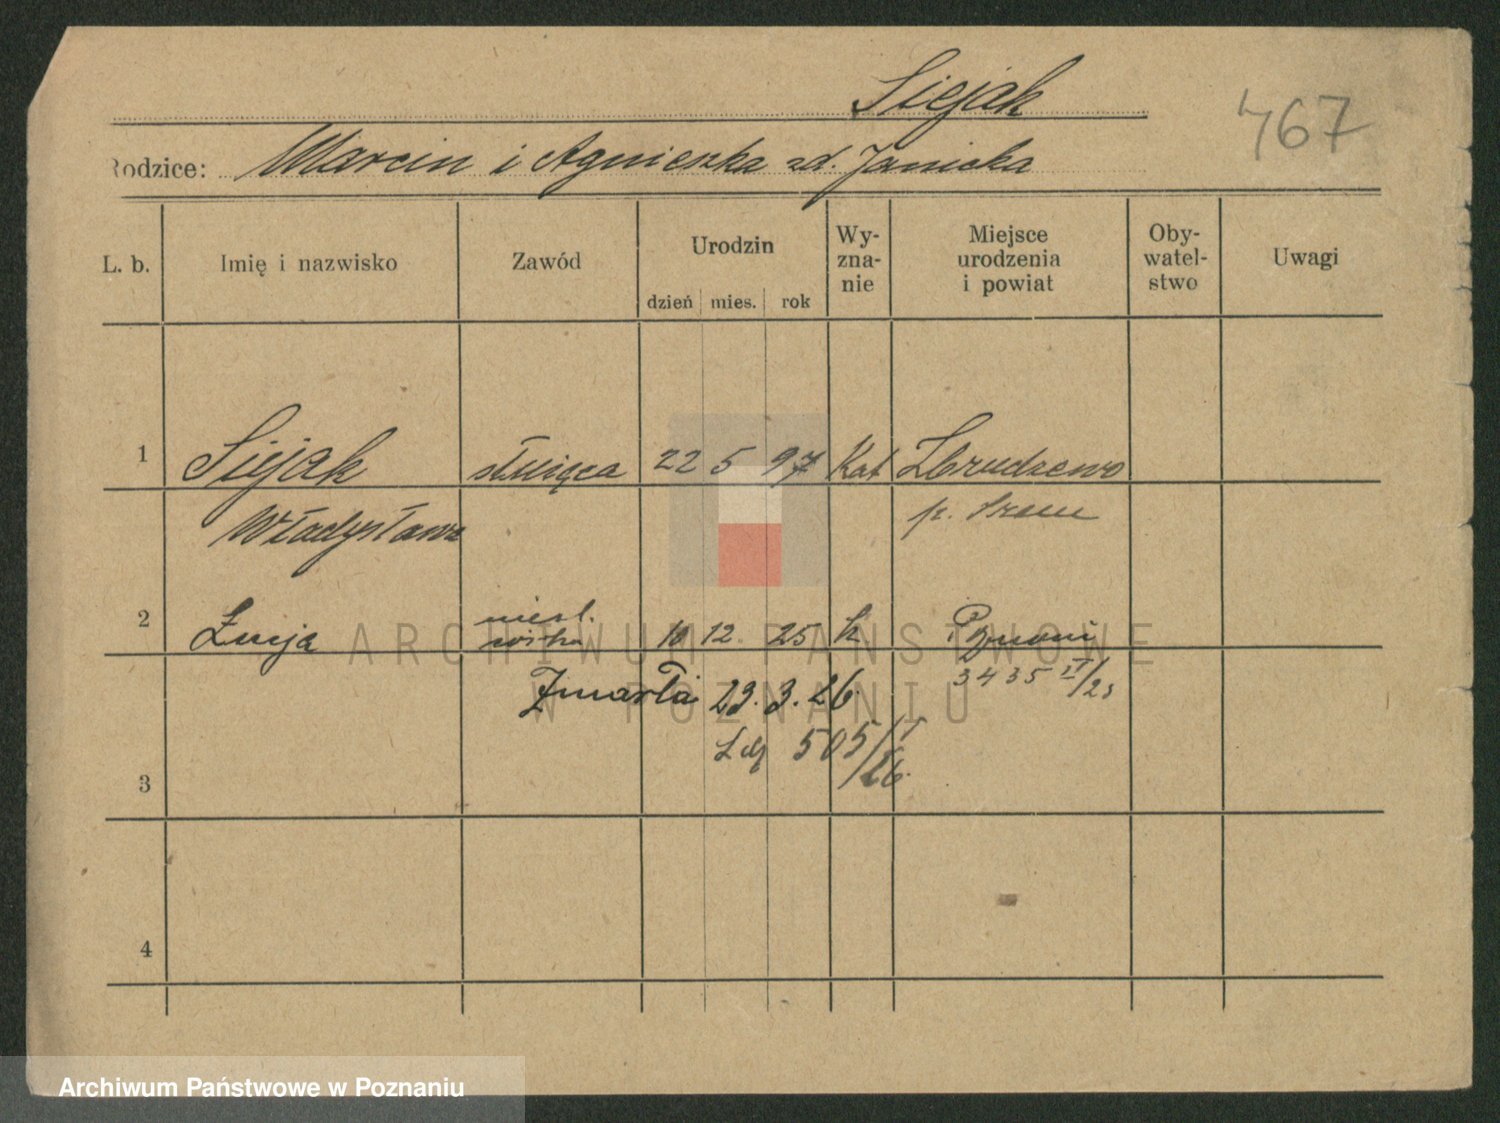 Siejak
467
Rodzice: Marcin i Agnieszka zd. Janicka
L. b. Imię i nazwisko Zawód Urodzin dzień mies. rok Wy-zna-nie Miejsce urodzenia i powiat Oby-watel-stwo Uwagi
1 Siejak służąca 22 5 97 Kat Zbrudzewo
Władysława p. Śrem
2 Łucja nieśl. córka 10 12 25 k Poznań
3435 II/25
Zmarła 23. 3. 26
505/I/26.
3
4
ARCHIWUM PAŃSTWOWE
W POZNANIU
Archiwum Państwowe w Poznaniu